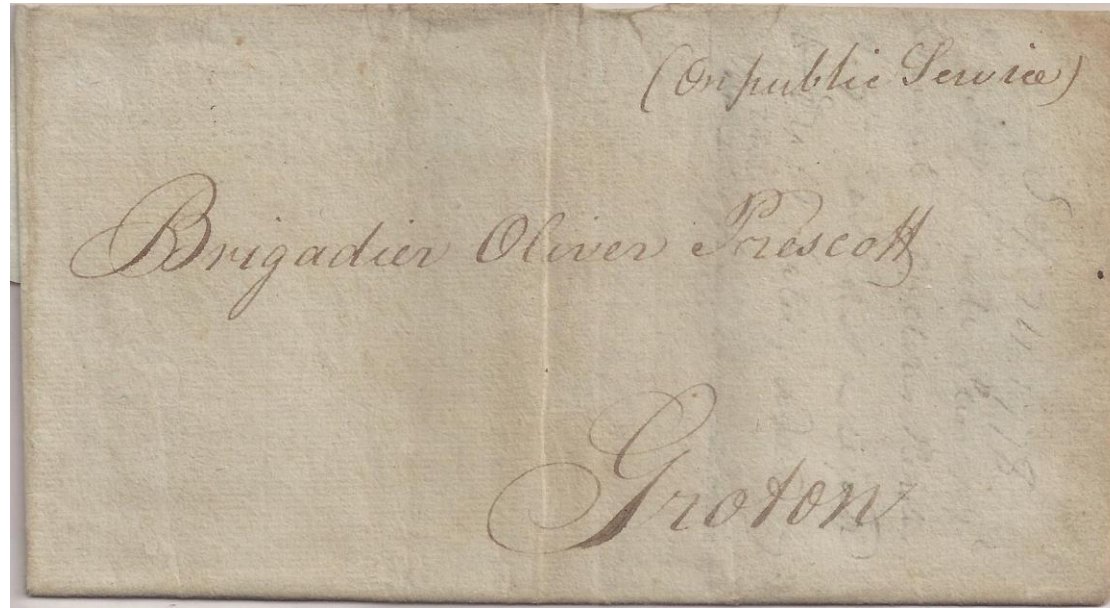 (On public Service)
Brigadier Oliver Prescott
Groton